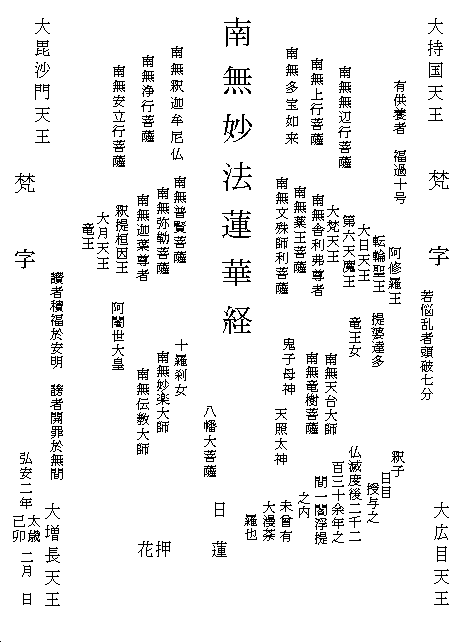 大持国天王
梵字
大広目天王
有供養者 福過十号
若悩乱者頭破七分
南無無辺行菩薩
南無上行菩薩
南無多宝如来
南無妙法蓮華経
南無釈迦牟尼仏
南無浄行菩薩
南無安立行菩薩
大毘沙門天王
梵字
大増長天王
阿修羅王
転輪聖王
提婆達多
大日天王
第六天魔王
竜王女
大梵天王
南無舎利弗尊者
南無薬王菩薩
南無文殊師利菩薩
南無普賢菩薩
南無弥勒菩薩
南無迦葉尊者
釈提桓因王
大月天王
竜王
阿闍世大皇
南無天台大師
南無竜樹菩薩
鬼子母神
天照太神
八幡大菩薩
十羅刹女
南無妙楽大師
南無伝教大師
釈子
日目
授与之
仏滅度後二千二
百三十余年之
間一閻浮提
之内
未曾有
大漫荼
羅也
日蓮
花押
讃者積福於安明 謗者開罪於無間
弘安二年太歳己卯二月 日